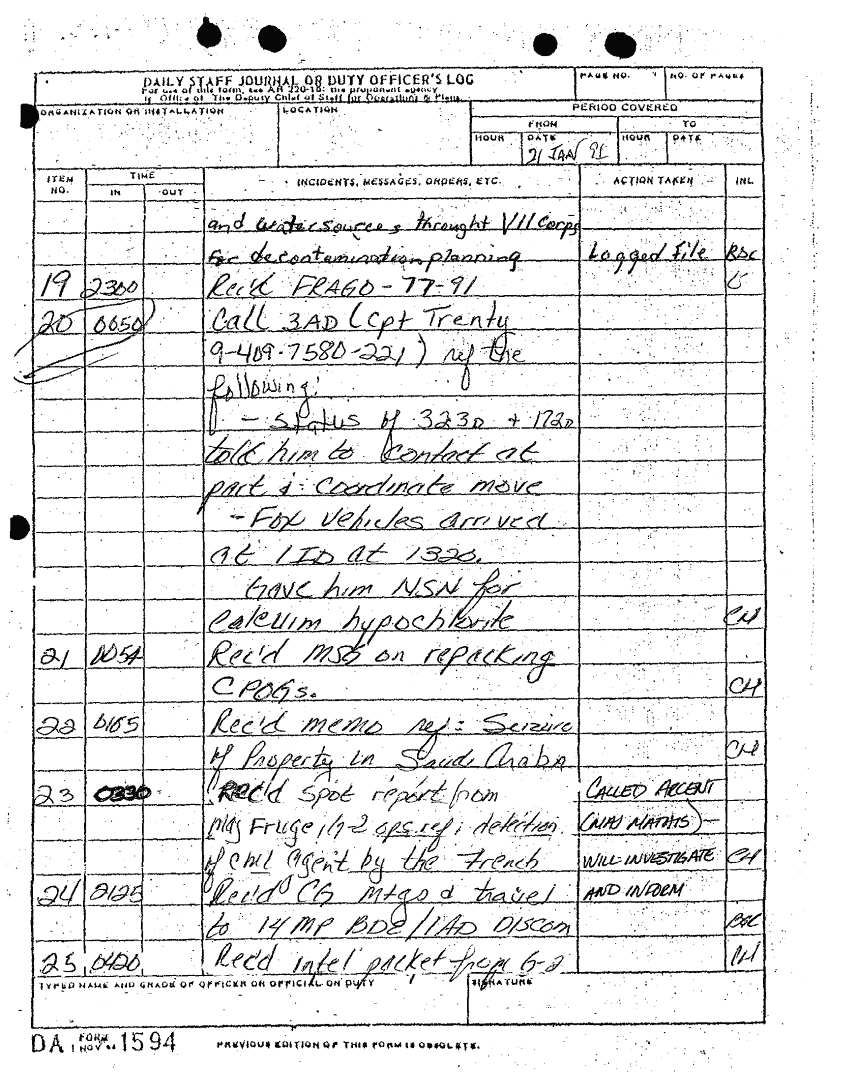 DAILY STAFF JOURNAL OR DUTY OFFICER'S LOG
For use of this form, see AR 220-15; the proponent agency
is Office of The Deputy Chief of Staff for Operations & Plans.
PAGE NO.
NO. OF PAGES
ORGANIZATION OR INSTALLATION
LOCATION
PERIOD COVERED
FROM
TO
HOUR
DATE
HOUR
DATE
21 JAN 91
ITEM NO.
TIME
IN
OUT
INCIDENTS, MESSAGES, ORDERS, ETC.
ACTION TAKEN
INL
and water sources throught VII Corps
for decontamination planning Logged File
19 2300 Rec'd FRAGO-77-91
20 0050 Call 3AD (Cpt Trenty
9-409-7580-221) ref the
following:
- Status of 323D + 172D
told him to contact at
part & coordinate move
- Fox vehicles arrived
at 1ID at 1320.
Gave him NSN for
calcuim hypochlorite CH
21 0054 Rec'd MSG on repacking
CPOGs. CH
22 0105 Rec'd memo ref: Seizure
of Property in Saudi Araba CH
23 0330 Rec'd Spot report from CALLED ARCENT
Maj Fruge, G-2 ops ref: detection (MAJ MATHIS)-
of cml agent by the French WILL INVESTIGATE CH
24 2125 Rec'd CG Mtgs & travel AND INFORM
to 14 MP BDE/1AD DISCOM
25 0420 Rec'd intel packet from G-2 CH
TYPED NAME AND GRADE OF OFFICER OR OFFICIAL ON DUTY
SIGNATURE
DA FORM 1 NOV 1594
PREVIOUS EDITION OF THIS FORM IS OBSOLETE.